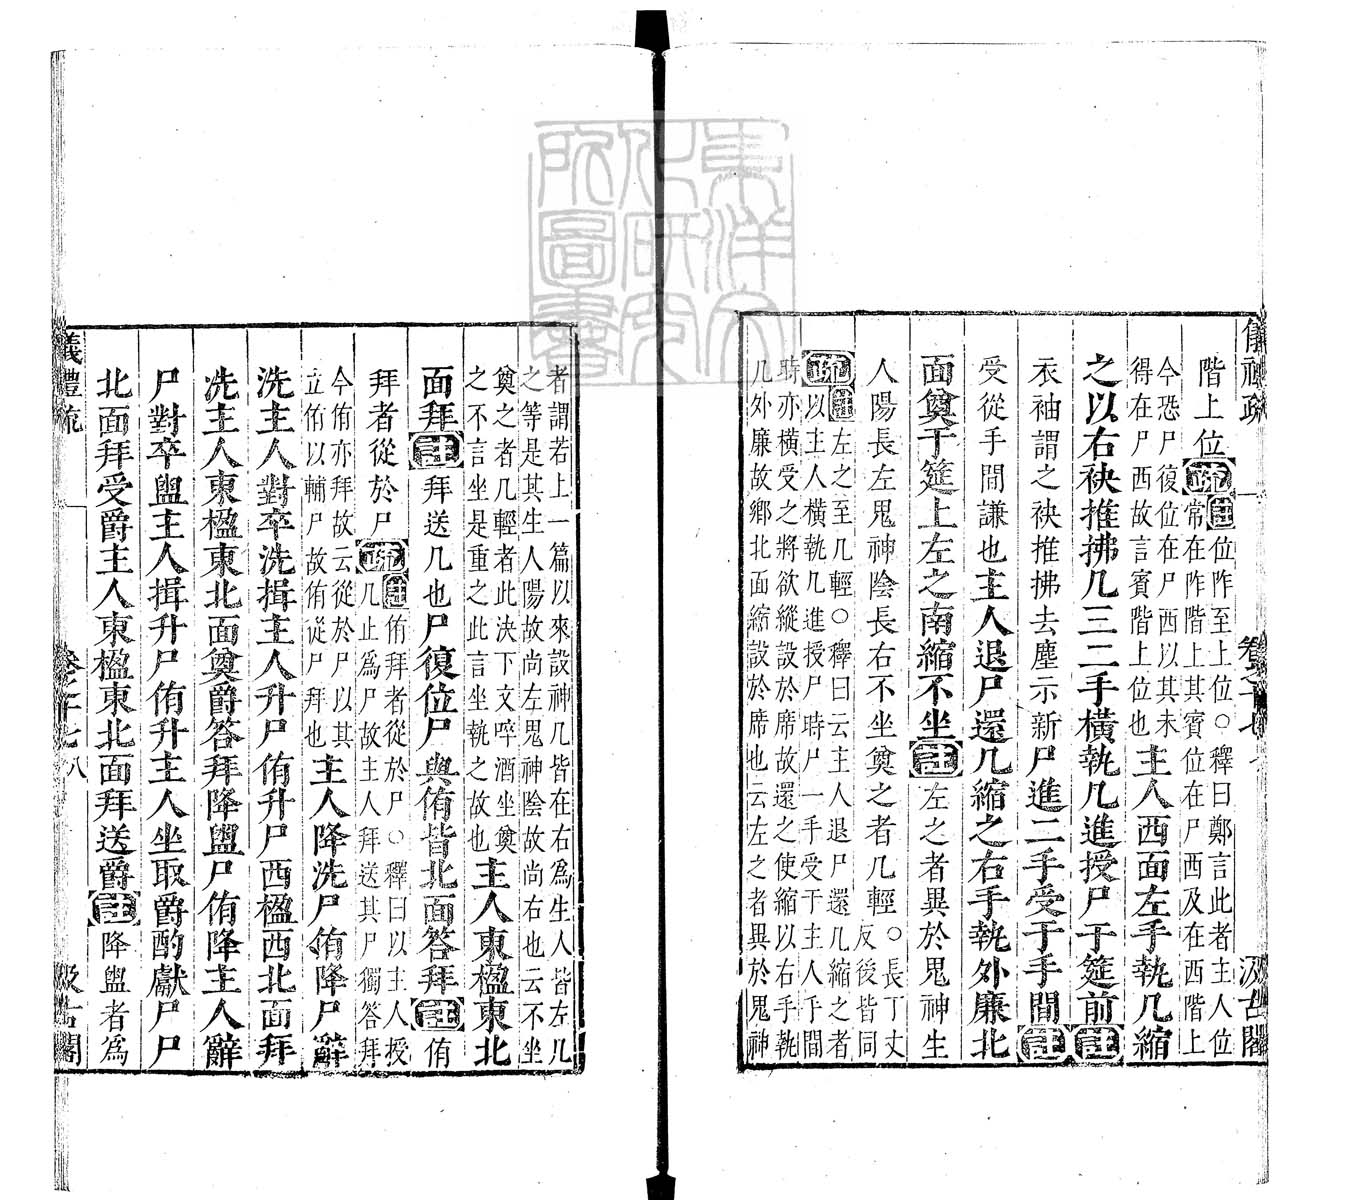 儀禮疏 卷之十七 汲古閣
階上位疏注位阼至上位○釋曰鄭言此者主人位
常在阼階上其賓位在尸西及在西階上
今恐尸復位在尸西以其未
得在尸西故言賓階上位也主人西面左手執几縮
之以右袂推拂几三二手橫執几進授尸于筵前註
衣袖謂之袂推拂去塵示新尸進二手受于手間註
受從手間謙也主人退尸還几縮之右手執外廉北
面奠于筵上左之南縮不坐註左之者異於鬼神生
人陽長左鬼神陰長右不坐奠之者几輕○長丁丈
反後皆同
疏注左之至几輕○釋曰云主人退尸還几縮之者
以主人橫執几進授尸時尸一手受于主人手間
時亦橫受之將欲縱設於席故還之使縮以右手執
几外廉故鄉北面縮設於席也云左之者異於鬼神
者謂若上一篇以來設神几皆在右爲生人皆左几
之等是其生人陽故尚左鬼神陰故尚右也云不坐
奠之者几輕者此決下文啐酒坐奠
之不言坐是重之此言坐執之故也主人東楹東北
面拜註拜送几也尸復位尸與侑皆北面答拜註侑
拜者從於尸疏注侑拜者從於尸○釋曰以主人授
几止爲尸故主人拜送其尸獨答拜
今侑亦拜故云從於尸以其
立侑以輔尸故侑從尸拜也主人降洗尸侑降尸辭
洗主人對卒洗揖主人升尸侑升尸西楹西北面拜
洗主人東楹東北面奠爵答拜降盥尸侑降主人辭
尸對卒盥主人揖升尸侑升主人坐取爵酌獻尸尸
北面拜受爵主人東楹東北面拜送爵註降盥者爲
儀禮疏 卷之十七 八 汲古閣
東洋文化研究所圖書